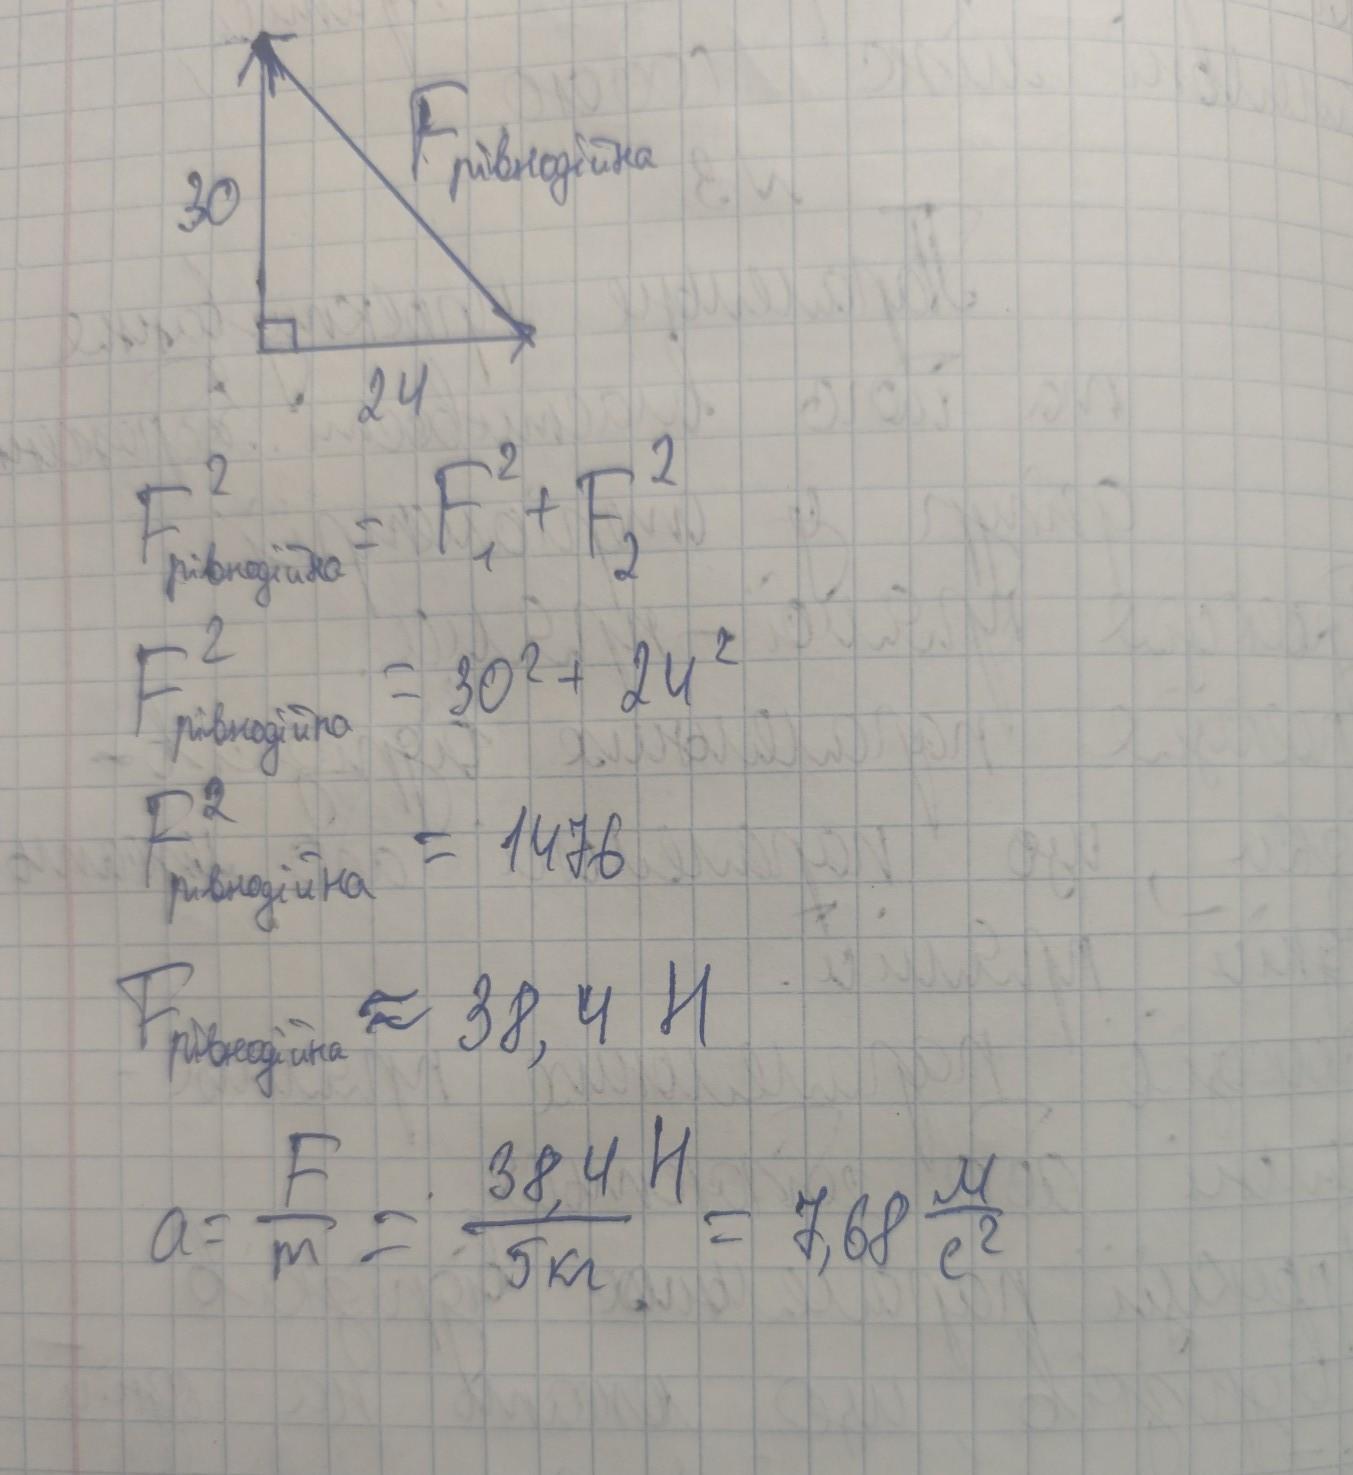 30
F рівнодійна
24
F²рівнодійна = F₁² + F₂²
F²рівнодійна = 30² + 24²
F²рівнодійна = 1476
Fрівнодійна ≈ 38,4 Н
a = F/m = 38,4 Н/5кг = 7,68 м/с²